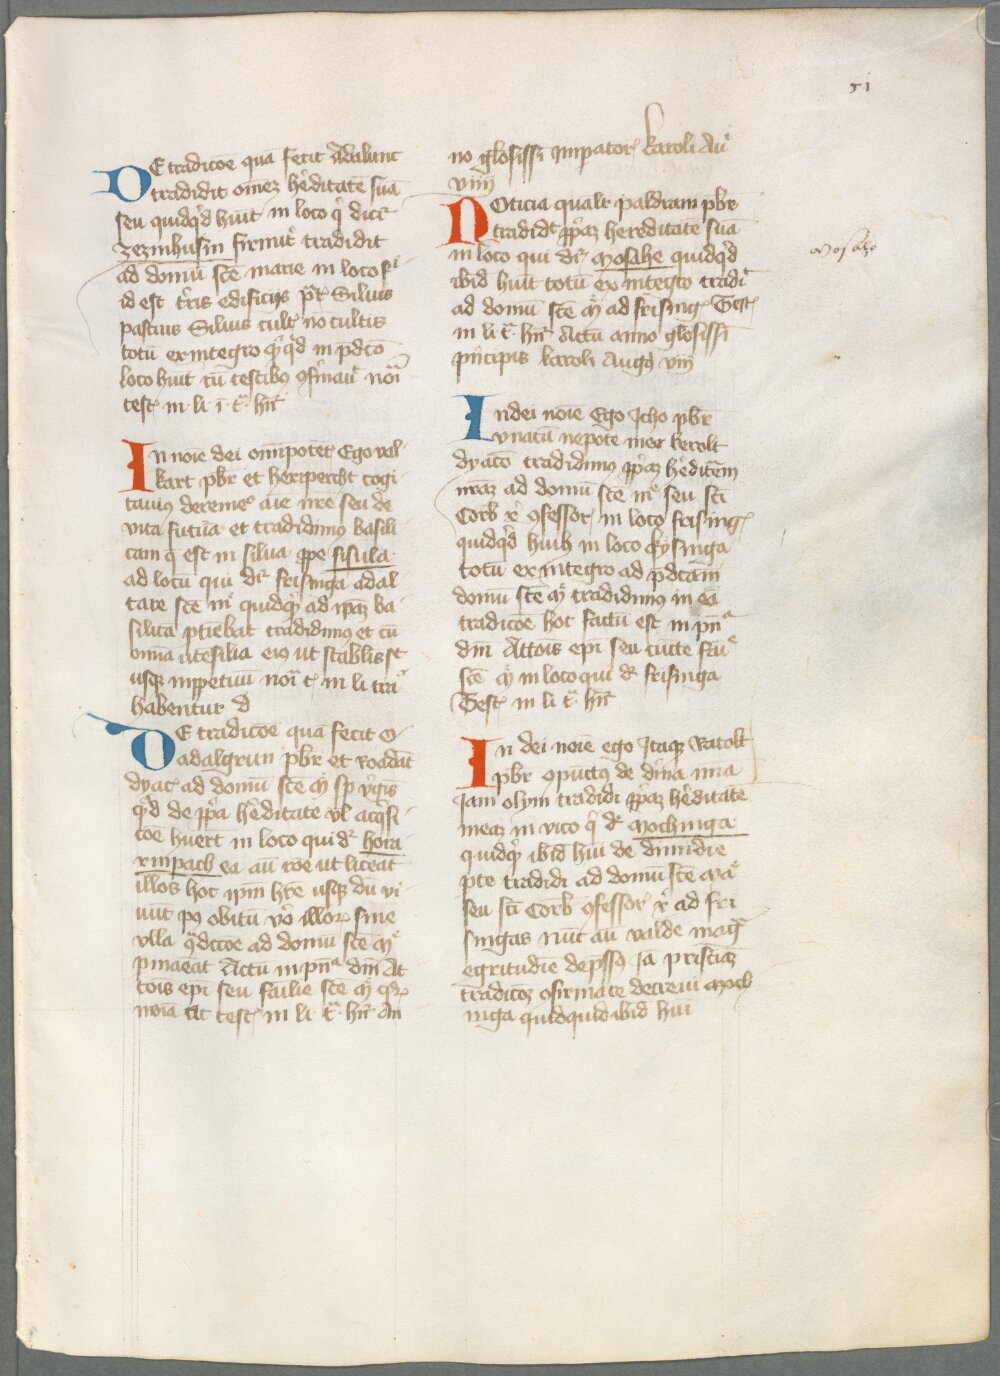 51
DE tradicōe quā fecit Adalunt
tradidit om̄ez hēditatē suā
seu quidq̄d huīt in loco q̄ dicr̄
zezinhusin firmit̄ tradidit
ad domū scē marie in loco
id est t̄ris edificijs Siluis
pascuis Siluis cult̄ nō cultis
totū ex integro q̄cq̄d in p̄dc̄o
loco huīt cū testibꝰ ꝯfirmauit
test in li i t̄ hn̄t
In noīe dei om̄ipotēt Ego wal
kart pbr̄ et herꝑercht cogi
tauimꝰ aīe nr̄e seu de
vita futura et tradidimꝰ basili
cam q̄ est in silua ꝓpe sisula
ad locū qui dr̄ frisinga ad al
tare scē mͥ quidq̄ ad ipaȝ ba
silica ꝑtīebat tradidimꝰ et cū
om̄ia vtesilia eiꝰ ut stabilis sit
usqȝ inꝑpetuū in li tra
habentur d
DE tradicōe quā fecit O
adalgrun pbr̄ et roadūt
dyac̄ ad domū scē mͥ v̄gis
q̄d de ꝓp̄a hēditate vl acq̄si
cōe huert in loco qui dr̄ hora
winpach ea aū rōe ut liceat
illos hoc ip̄m hr̄e usqȝ dū vi
uūt pꝰ obitū vō illorꝫ sine
vlla q̄dicc̄oe ad domū scē mͥ
ꝑmaēat Actū in p̄nͣ dn̄i At
tōis epi seu failie scē mͥ qꝫ
noīa test in li t̄ hn̄t An
no glosissi impator̄ karoli Auͥ
viiij
NOticia qualr̄ paldram pbr̄
tradidt ꝓp̄aȝ hereditatē suā
in loco qui dr̄ mosahe quidq̄d
ibid huīt totū ex integro tradi
ad domū scē mͥ ad frising Test
in li t̄ hn̄t Actū anno glosissi
p̄ncipis karoli Augꝰ viiij
Mosaho
In dei noīe Ego Icho pbr̄
vnacū nepote meo kerolt
dyacō tradidimꝰ ꝓp̄aȝ hēditēm
nr̄aȝ ad domū scē mͥ seu sci
Corb xͥ ꝯfessor̄ in loco frising
quidq̄d huim̄ in loco gysinga
totū ex integro ad p̄dc̄am
domū scē mͥ tradidimꝰ in ea
tradicōe hoc factū est in p̄nͣ
dn̄i Attōis epi seu cūcte
scē mͥ in loco qui dr̄ frisinga
Test in li t̄ hn̄t
In dei noīe ego Itaqȝ Ratolt
pbr̄ ꝯpūctꝰ de diīna
Iam olym tradidi ꝓp̄aȝ hēditatē
meaȝ in vico q̄ dr̄ mochinga
quidq̄ ibid hui de dimidie
pte tradidi ad domū scē maͥ
seu sci Corb ꝯfessor̄ xͥ ad fri
singas nūc aū valde magͣ
egritudīe dep̄ssꝰ īa pristīaȝ
tradicōȝ ꝯfirmare decreui moch
inga quidquid ibid hui